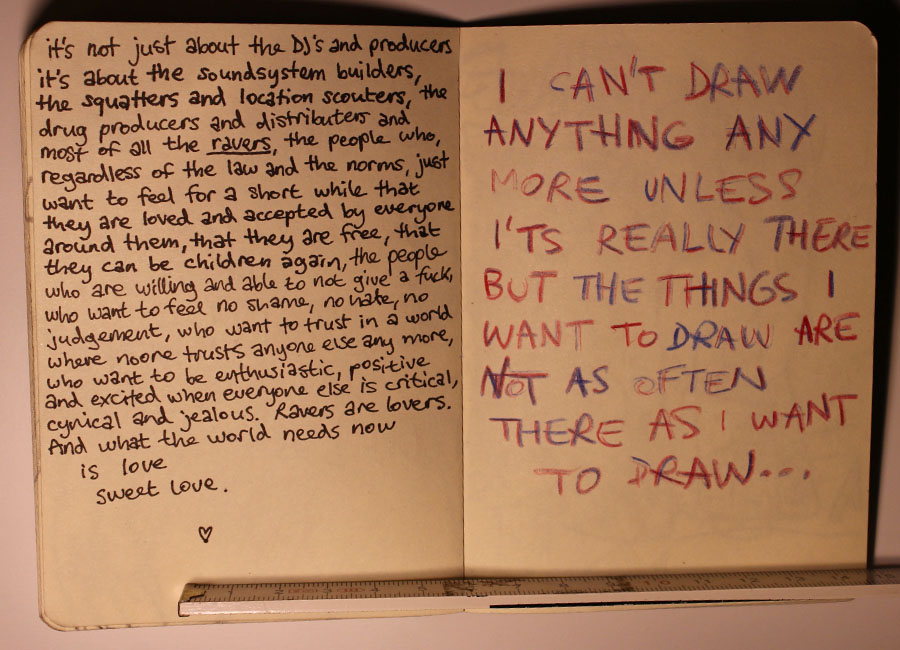 it's not just about the DJ's and producers
it's about the soundsystem builders,
the squatters and location scouters, the
drug producers and distributers and
most of all the ravers, the people who,
regardless of the law and the norms, just
want to feel for a short while that
they are loved and accepted by everyone
around them, that they are free, that
they can be children again, the people
who are willing and able to not give a fuck,
who want to feel no shame, no hate, no
judgement, who want to trust in a world
where noone trusts anyone else any more,
who want to be enthusiastic, positive
and excited when everyone else is critical,
cynical and jealous. Ravers are lovers.
And what the world needs now
is love
sweet love.
♡
I CAN'T DRAW
ANYTHING ANY
MORE UNLESS
I'TS REALLY THERE
BUT THE THINGS I
WANT TO DRAW ARE
NOT AS OFTEN
THERE AS I WANT
TO DRAW...